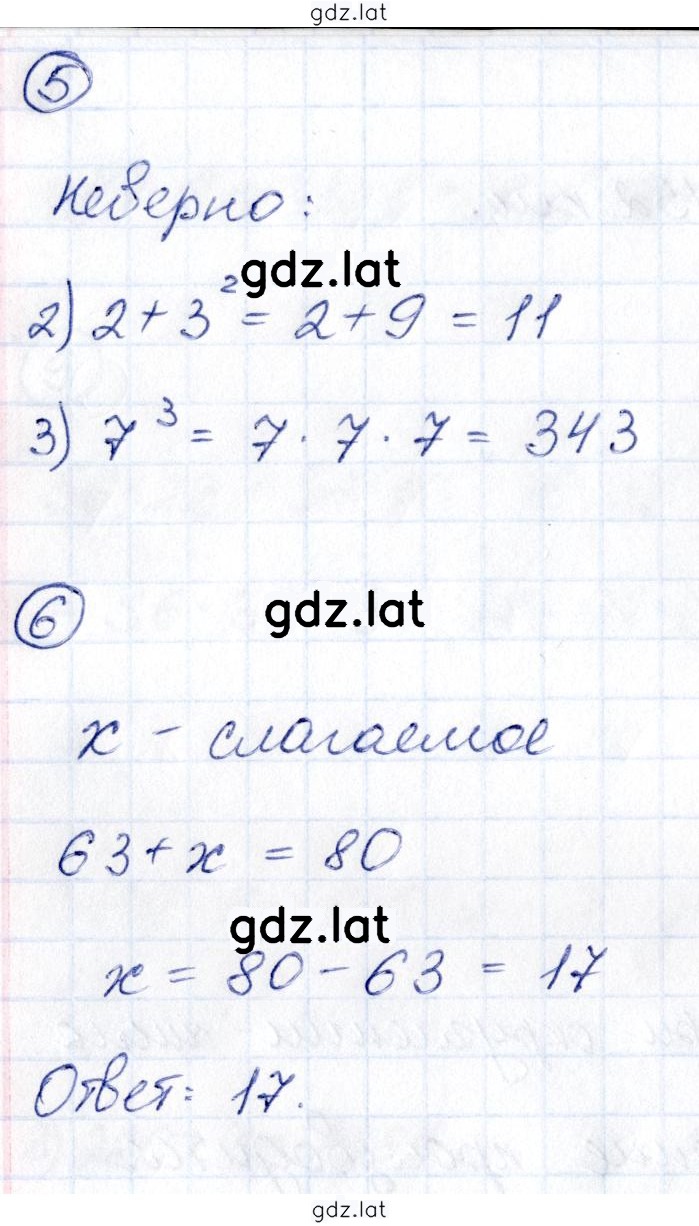 gdz.lat
5
Неверно:
gdz.lat
2) 2 + 3² = 2 + 9 = 11
3) 7³ = 7 · 7 · 7 = 343
6
gdz.lat
x - слагаемое
63 + x = 80
gdz.lat
x = 80 - 63 = 17
Ответ: 17.
gdz.lat